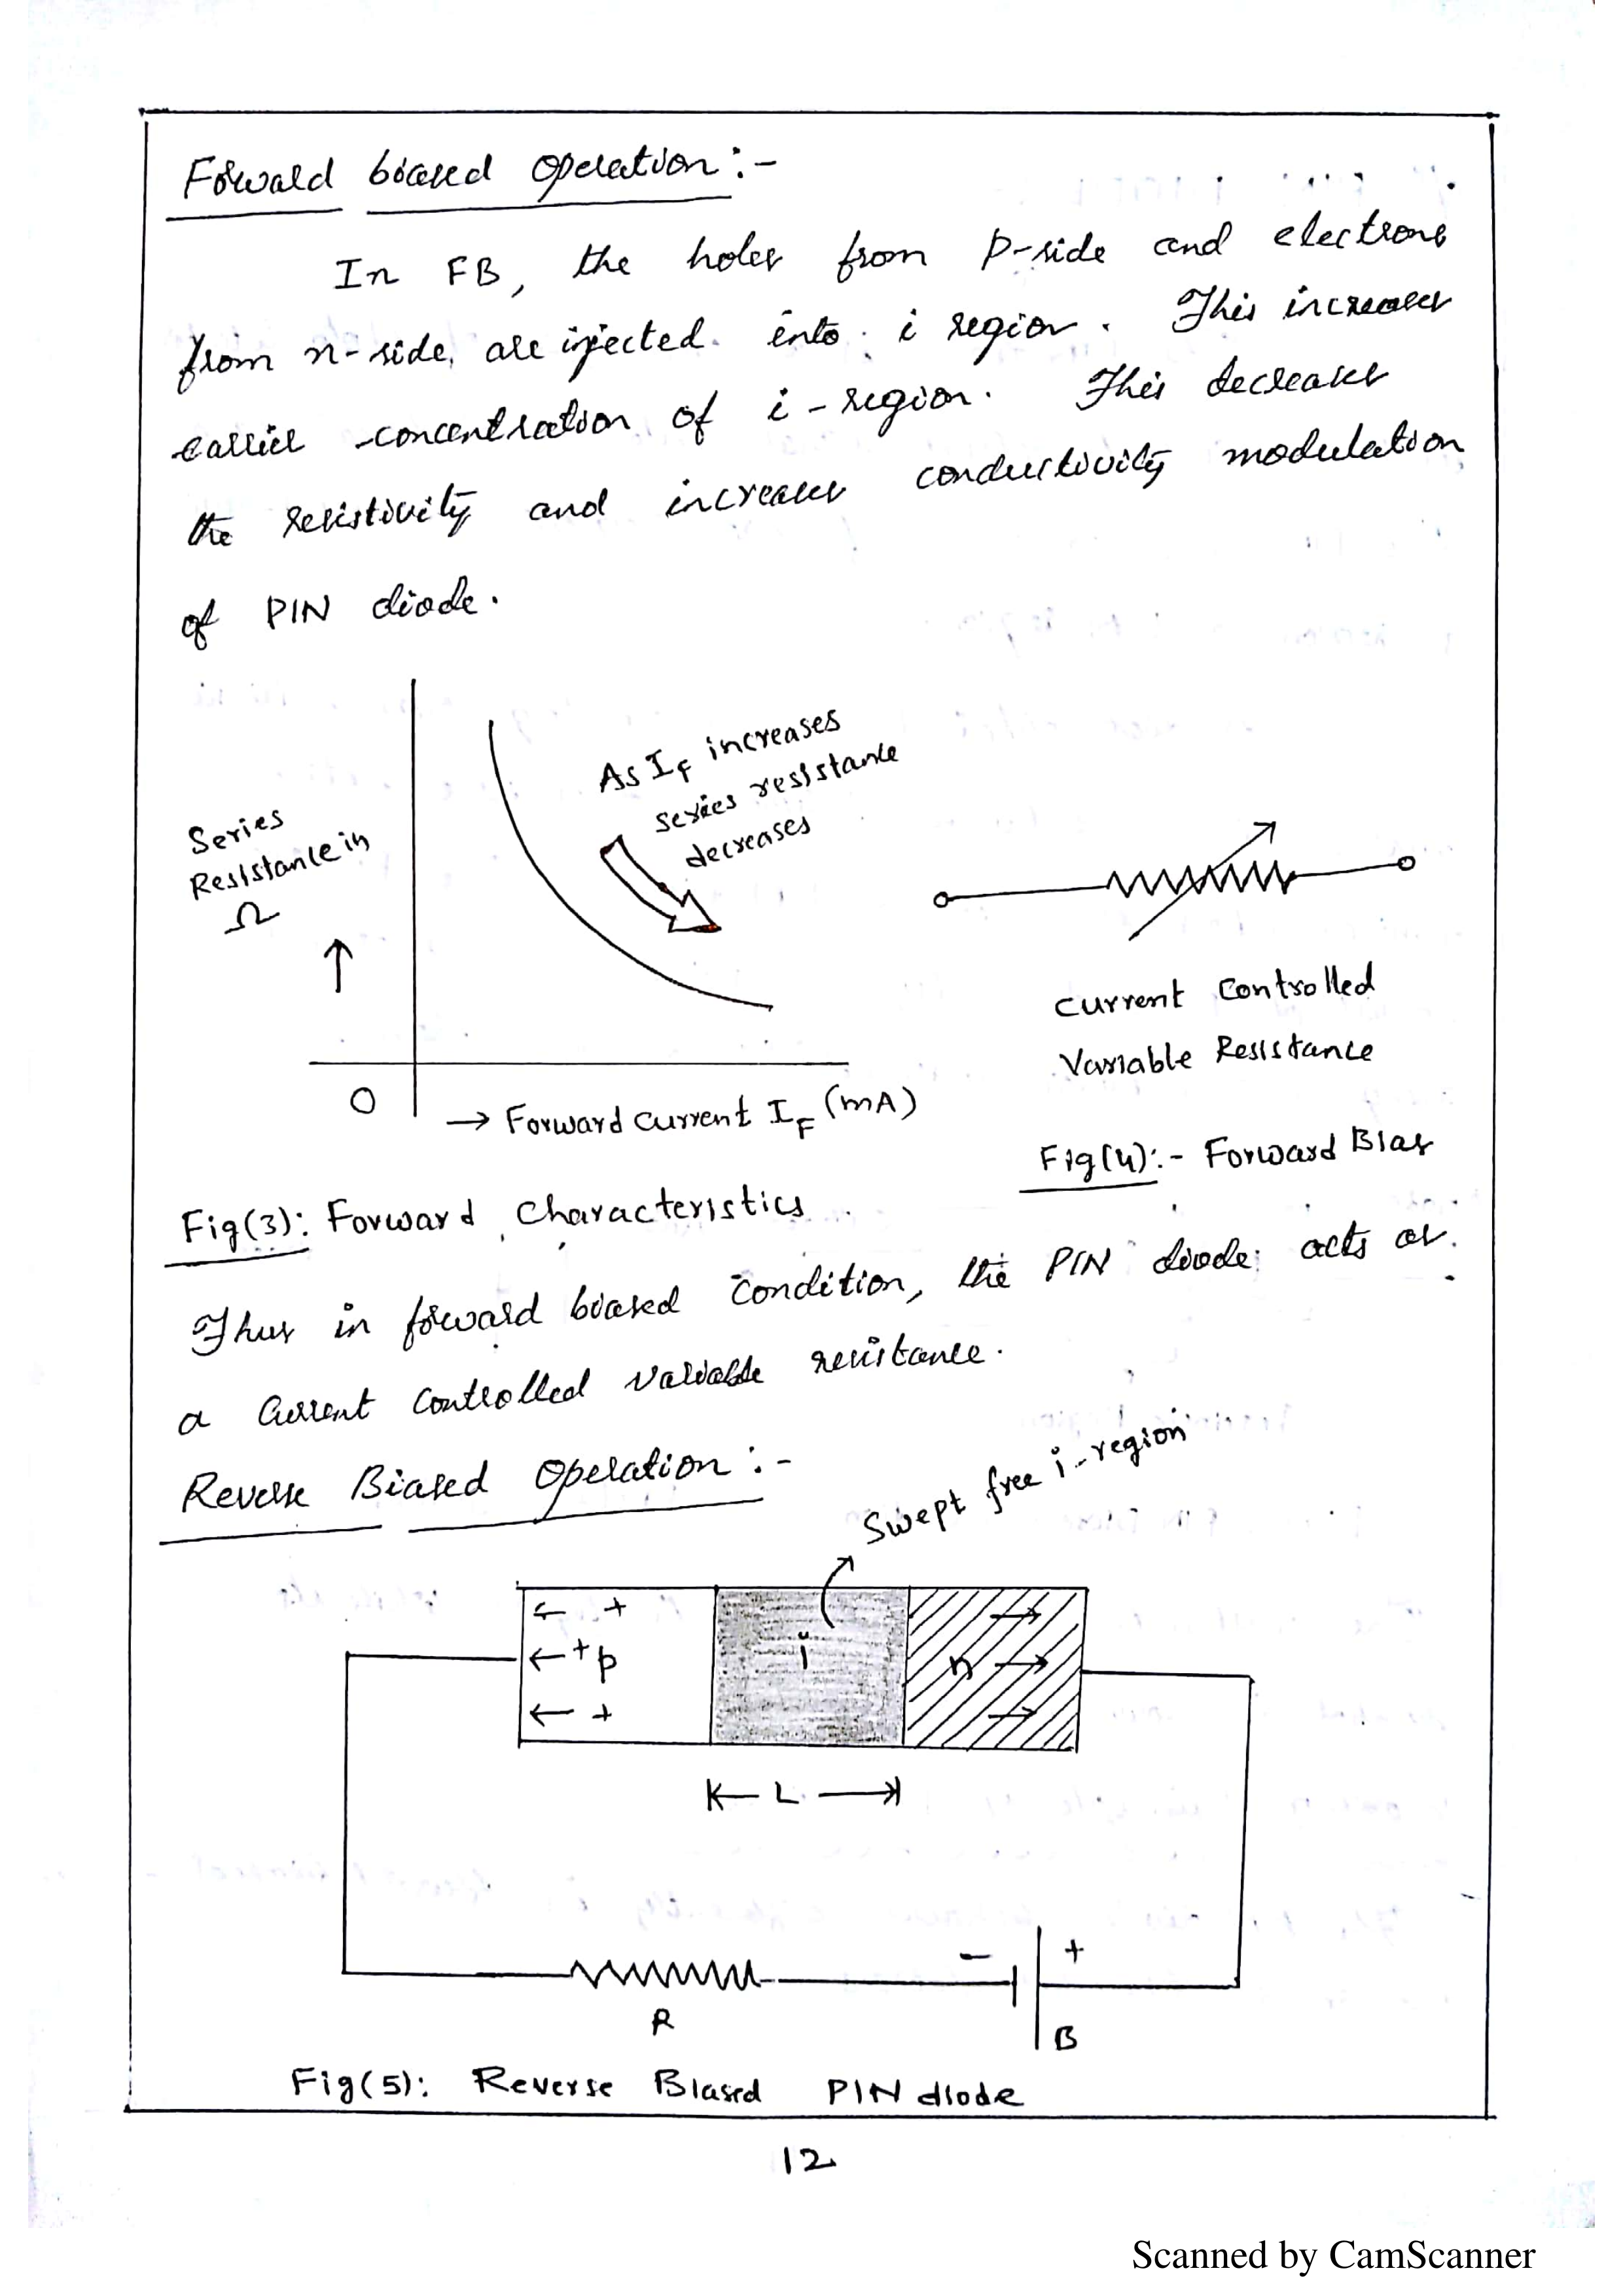 Forward biased operation :-
In FB, the holes from p-side and electrons
from n-side, are injected into i region. This increases
carrier concentration of i-region. This decreases
the resistivity and increases conductivity modulation
of PIN diode.
As IF increases
series resistance
decreases
Series
Resistance in
Ω
↑
O
→ Forward current IF (mA)
Current Controlled
Variable Resistance
Fig(4):- Forward Bias
Fig(3): Forward Characteristics
Thus in forward biased condition, the PIN diode acts as
a Current Controlled variable resistance.
Reverse Biased Operation :-
Swept free i-region
← +
← + p
← +
i
n →
L
R
- +
B
Fig(5): Reverse Biased PIN diode
12
Scanned by CamScanner